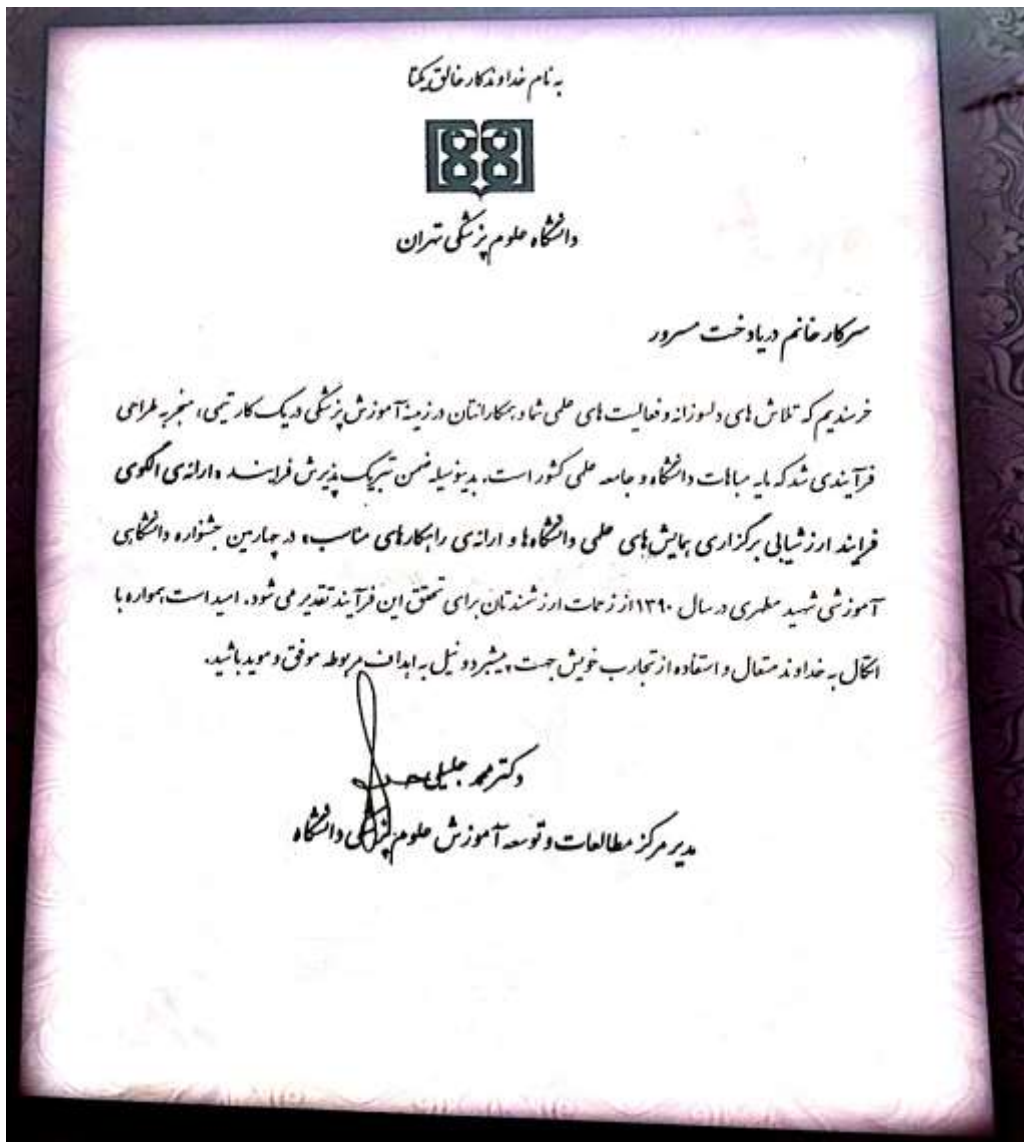 به نام خداوندگار خالق یکتا
دانشگاه علوم پزشکی تهران
سرکار خانم دریادخت مسرور
خرسندیم که تلاش های دلسوزانه و فعالیت های علمی شما و همکارانتان در زمینهٔ آموزش پزشکی در یک کار تیمی، منجر به طراحی
فرآیندی شد که مایه مباهات دانشگاه و جامعه علمی کشور است. بدینوسیله ضمن تبریک پذیرش فرایند «ارائه‌ی الگوی
فرایند ارزشیابی برگزاری همایش‌های علمی دانشگاه‌ها و ارائه‌ی راهکارهای مناسب» در چهارمین جشنواره دانشگاهی
آموزشی شهید مطهری در سال ۱۳۹۰ از زحمات ارزشمندتان برای تحقق این فرآیند تقدیر می شود. امید است همواره با
اتکال به خداوند متعال و استفاده از تجارب خویش جهت پیشبرد و نیل به اهداف مربوطه موفق و موید باشید.
دکتر محمد جلیلی
مدیر مرکز مطالعات و توسعه آموزش علوم پزشکی دانشگاه